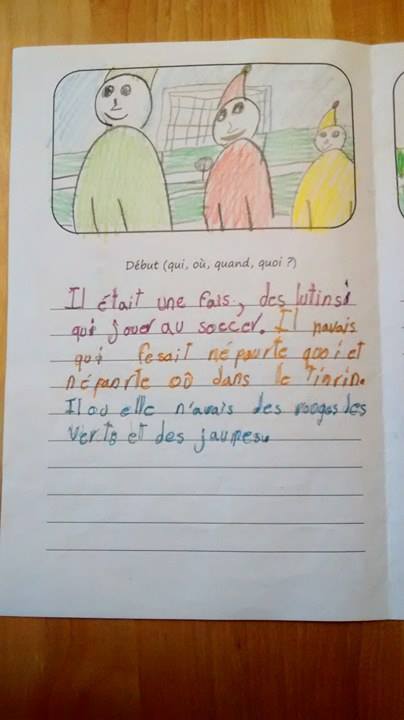 Début (qui, où, quand, quoi ?)
Il était une fais, des lutinsi
qui jouer au soccer. Il navais
qui fesait népourte quoi et
népaorte où dans le Tinrin.
Il ou elle n'avais des rooges des
verts et des jaunes.